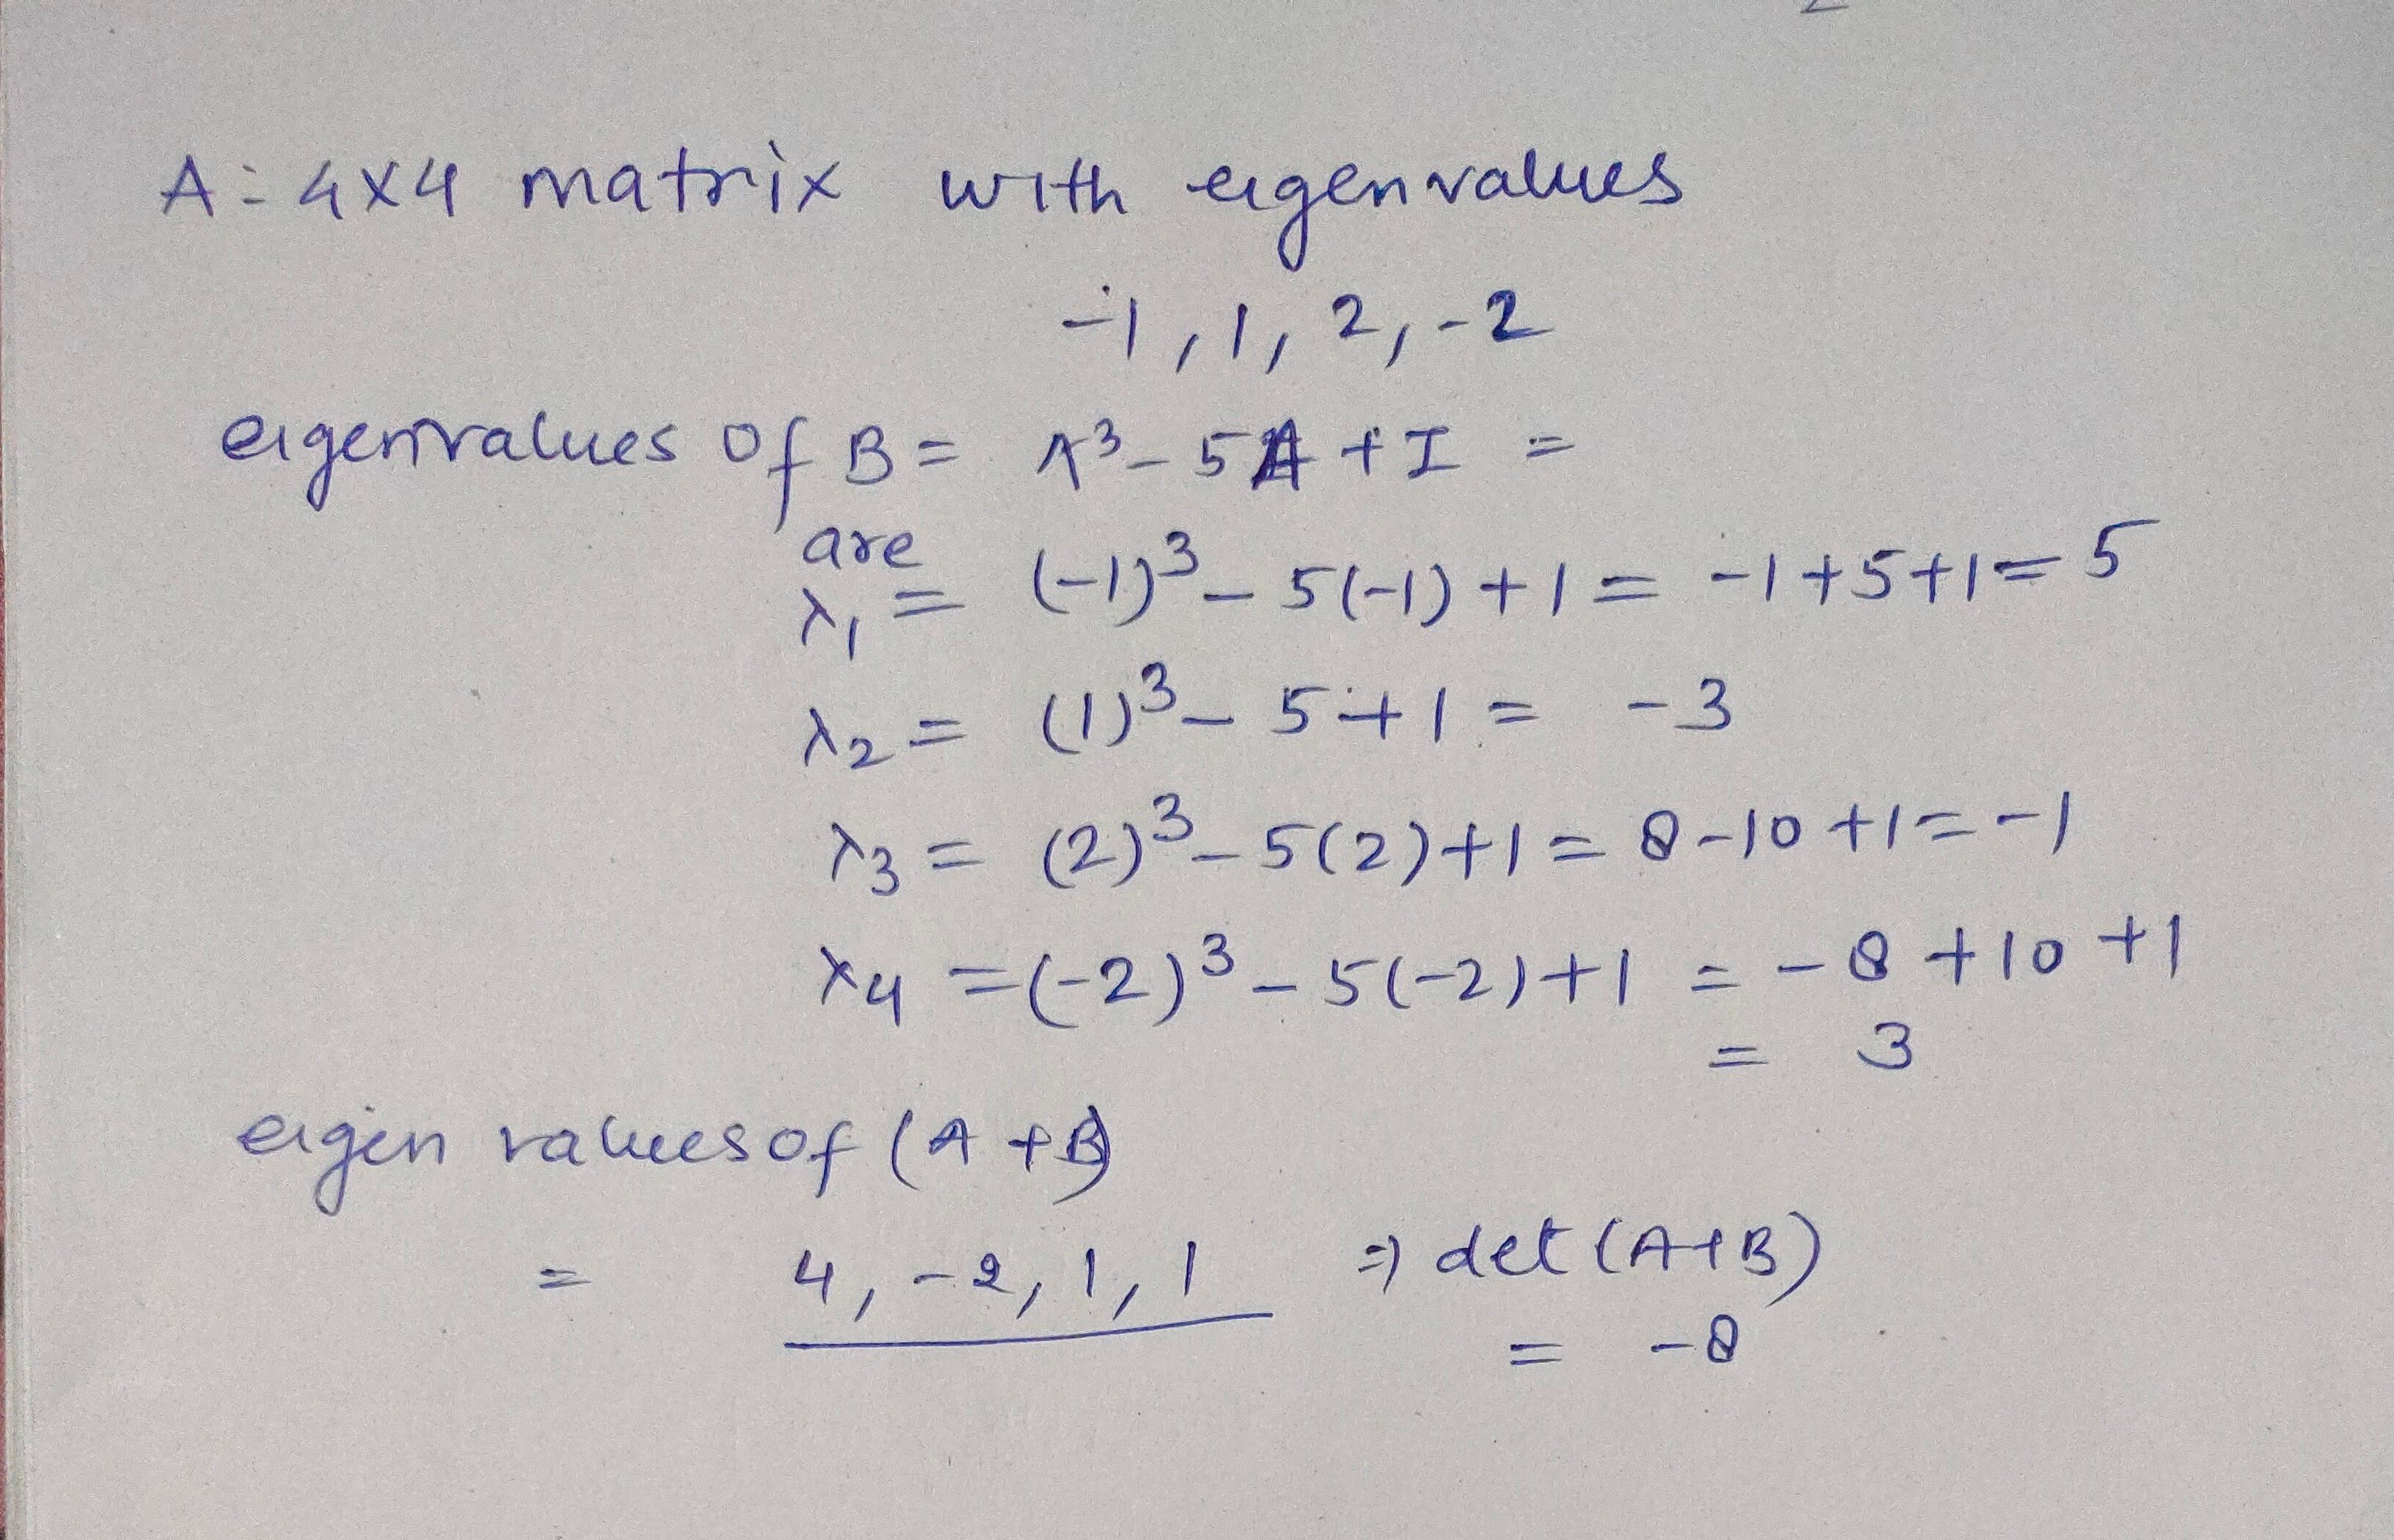 A: 4x4 matrix with eigenvalues
-1, 1, 2, -2
eigenvalues of B = A³ - 5A + I =
are
λ₁ = (-1)³ - 5(-1) + 1 = -1 + 5 + 1 = 5
λ₂ = (1)³ - 5 + 1 = -3
λ₃ = (2)³ - 5(2) + 1 = 8 - 10 + 1 = -1
λ₄ = (-2)³ - 5(-2) + 1 = -8 + 10 + 1
= 3
eigen values of (A + B)
= 4, -2, 1, 1 ⇒ det (A+B)
= -8